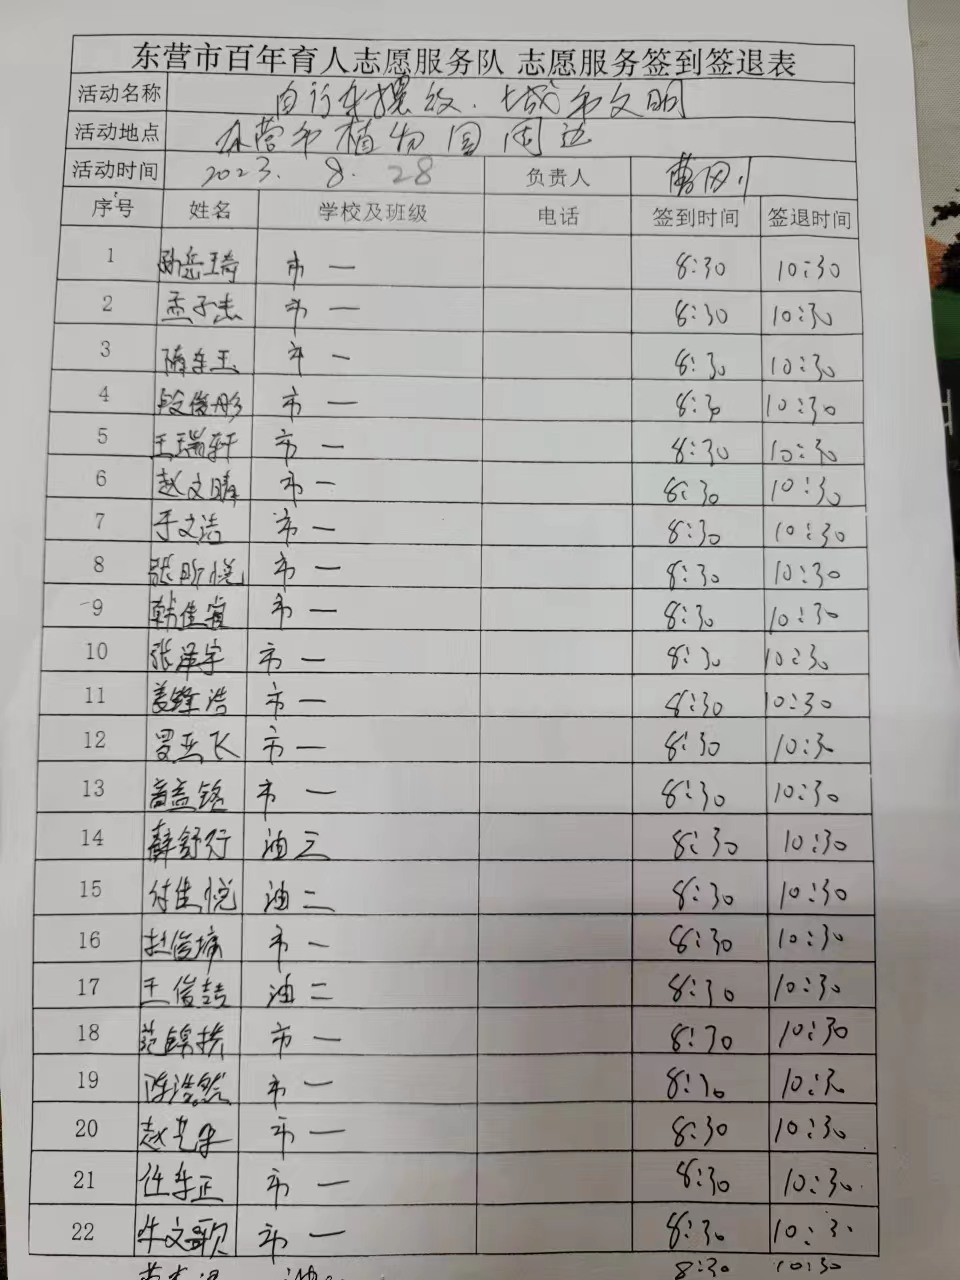 东营市百年育人志愿服务队 志愿服务签到签退表
活动名称 自行车摆放、城市文明
活动地点 东营市植物园周边
活动时间 2023. 8. 28 负责人
序号 姓名 学校及班级 电话 签到时间 签退时间
1 市一 8:30 10:30
2 孟子杰 市一 8:30 10:30
3 市一 8:30 10:30
4 段俊彤 市一 8:30 10:30
5 王瑞轩 市一 8:30 10:30
6 赵文晴 市一 8:30 10:30
7 于文洁 市一 8:30 10:30
8 市一 8:30 10:30
9 韩佳宜 市一 8:30 10:30
10 张泽宇 市一 8:30 10:30
11 姜锋浩 市一 8:30 10:30
12 市一 8:30 10:30
13 市一 8:30 10:30
14 薛舒行 油三 8:30 10:30
15 付佳悦 油二 8:30 10:30
16 市一 8:30 10:30
17 王俊喆 油二 8:30 10:30
18 市一 8:30 10:30
19 陈浩然 市一 8:30 10:30
20 市一 8:30 10:30
21 任东正 市一 8:30 10:30
22 牛文歌 市一 8:30 10:30
8:30 10:30